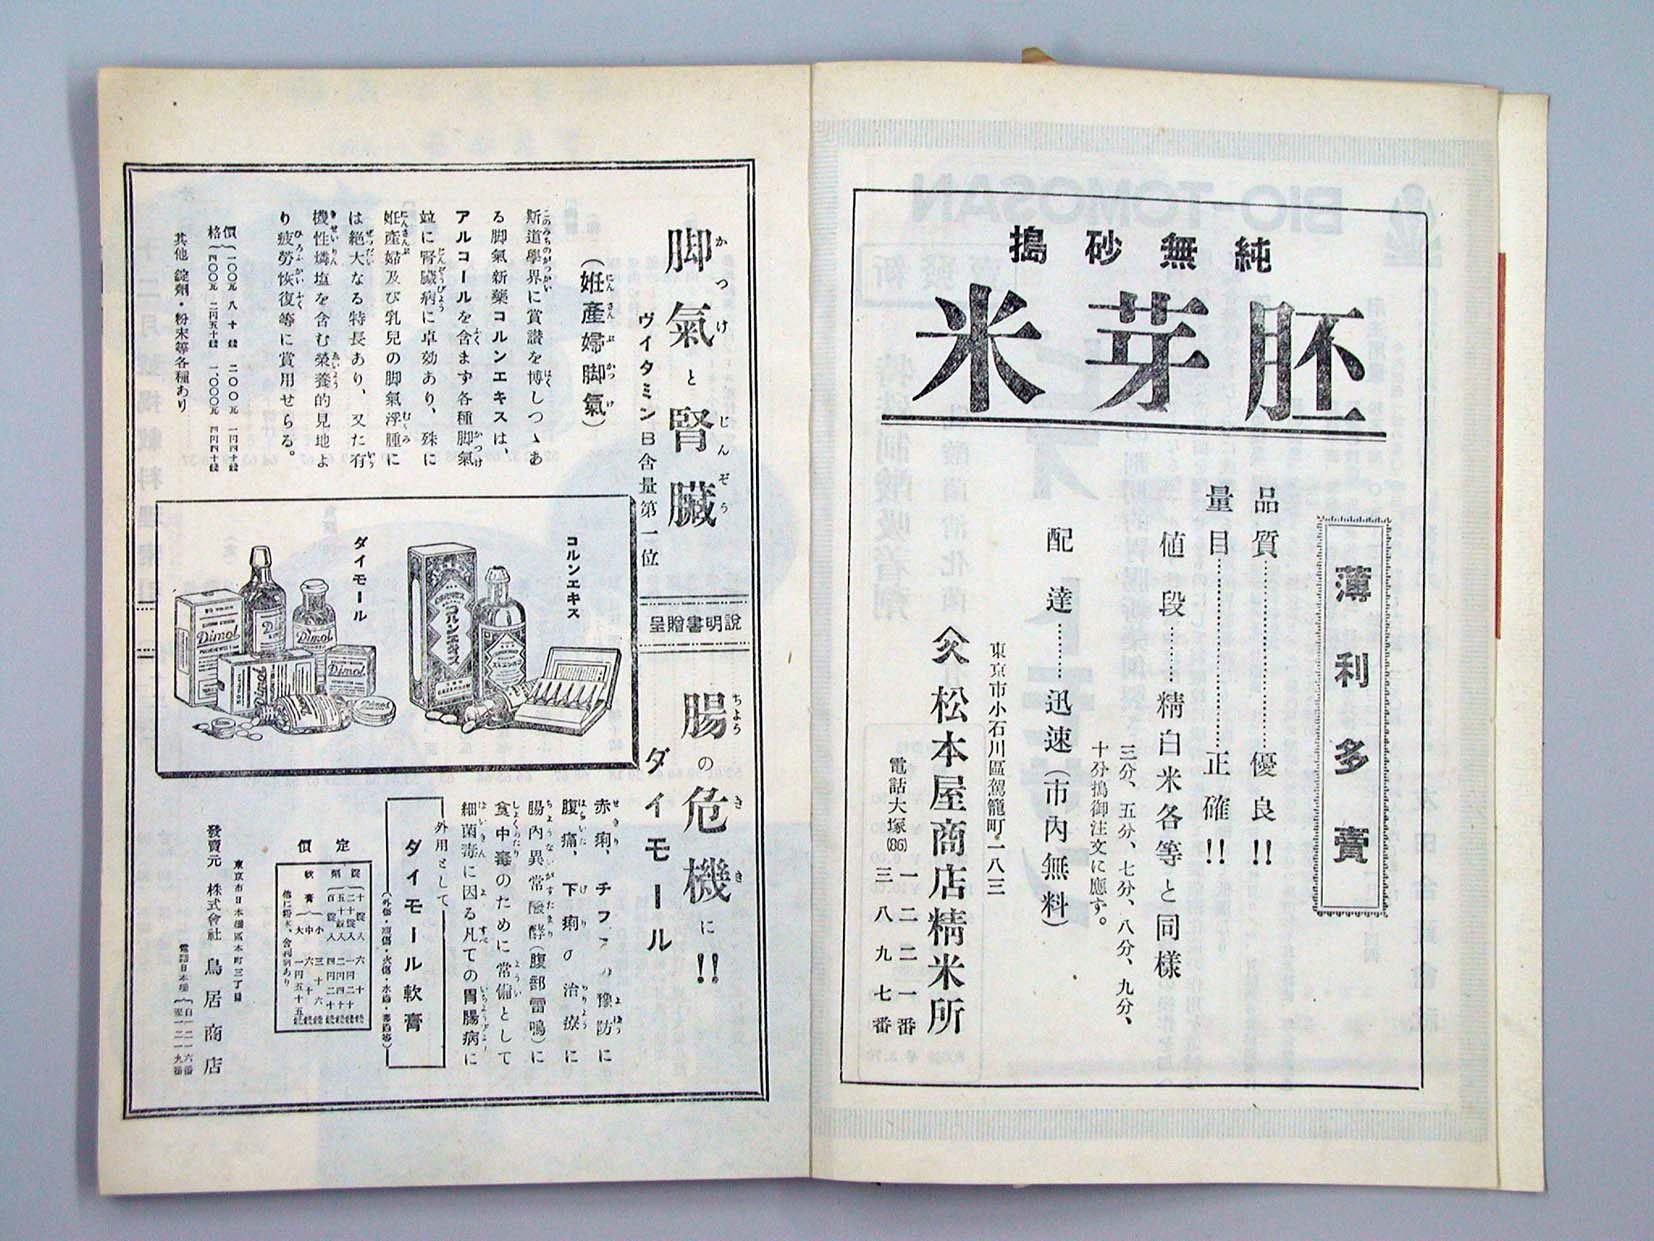 純無砂搗
胚芽米
薄利多賣
品質………優良!!
量目………正確!!
値段……精白米各等と同樣
三分、五分、七分、八分、九分、
十分搗御注文に應ず。
配達……迅速(市內無料)
東京市小石川區駕籠町一八三
松本屋商店精米所
電話大塚(86)
一二二一番
三八九七番
脚氣と腎臟
かつけ
じんぞう
ヴイタミンB含量第一位
(姙產婦脚氣)
にんさんぷかつけ
斯道學界に賞讃を博しつゝあ
る脚氣新藥コルンエキスは、
アルコールを含まず各種脚氣
竝に腎臟病に卓効あり、殊に
姙產婦及び乳兒の脚氣浮腫に
は絕大なる特長あり、又た有
機性燐塩を含む榮養的見地よ
り疲勞恢復等に賞用せらる。
價格
一〇〇瓦 八十錢
二〇〇瓦 一円四十錢
四〇〇瓦 二円五十錢
一〇〇〇瓦 四円四十錢
其他 錠劑・粉末等各種あり
コルンエキス
ダイモール
コルンエキス
Dimol
Dimol
Dimol
說明書贈呈
腸の危機に!!
ちよう
きき
ダイモール
赤痢、チフスの豫防に
腹痛、下痢の治療に
腸內異常醱酵(腹部雷鳴)に
食中毒のために常備として
細菌毒に因る凡ての胃腸病に
外用として
ダイモール軟膏
定價
錠劑
二十錠入 六十錢
五十錠入
百錠入
軟膏
小 三十六錢
中 六十錢
大 一円五十五錢
他に粉末、舍利別あり
東京市日本橋區本町三丁目
發賣元 株式會社 鳥居商店
電話日本橋